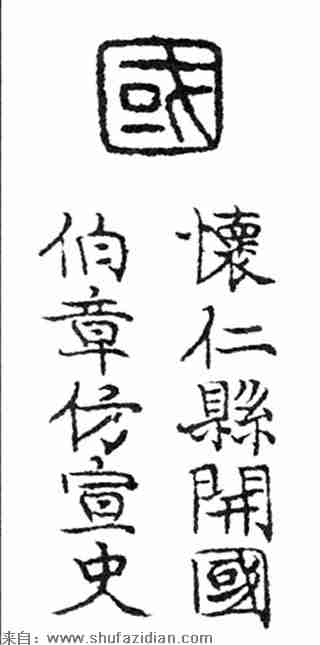 國
懷仁縣開國
伯章仿宣史
来自：www.shufazidian.com